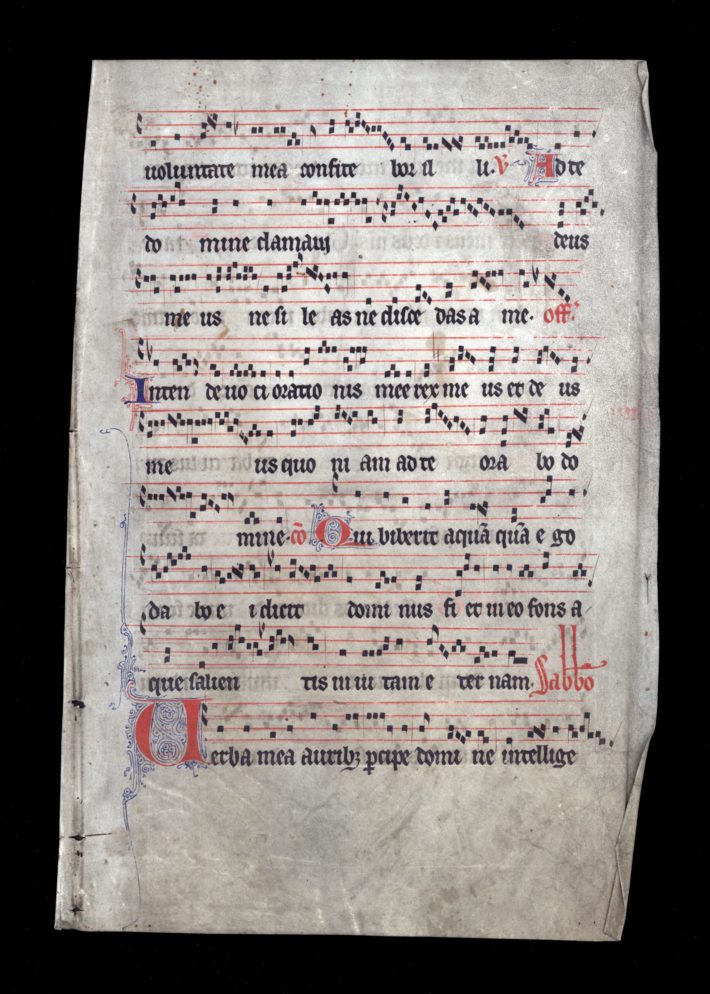 uoluntate mea confite bor il li. V̄ Ad te
do mine clamaui deus
me us ne si le as ne disce das a me. off̄.
Inten de uo ci oratio nis mee rex me us et de us
me us quo ni am ad te ora bo do
mine. cō Qui biberit aquā quā e go
da bo e i dicit domi nus fi et in eo fons a
que salien tis in ui tam e ter nam. Sabbō
Uerba mea auribꝫ ꝑcipe domi ne intellige